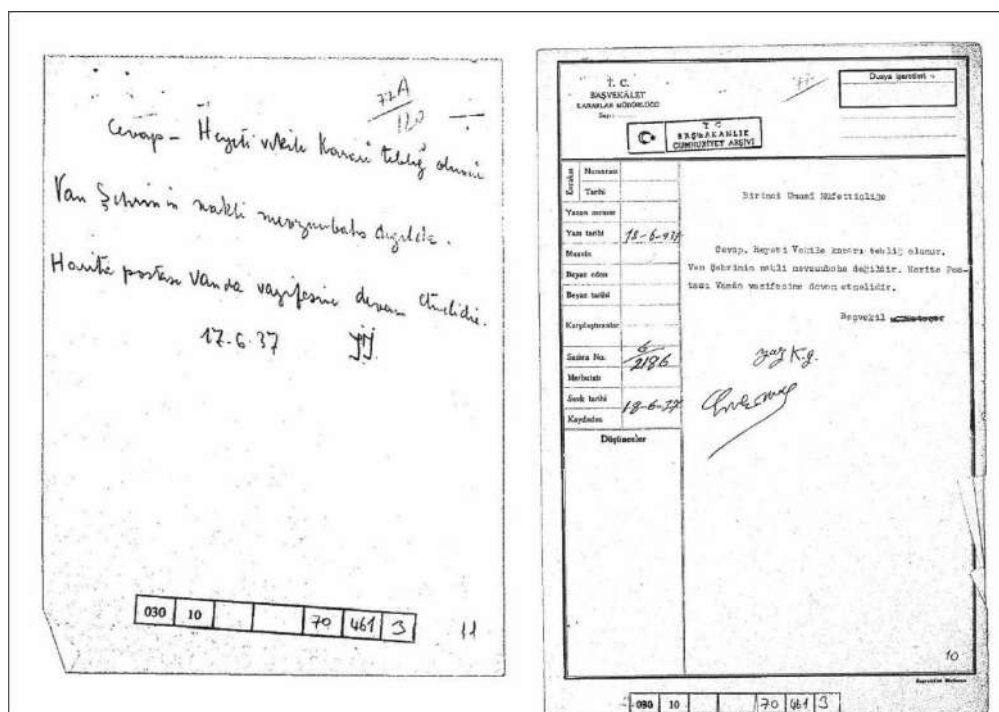 77A
120
Cevap - Heyeti vekile Kararı tebliğ olunur
Van Şehrinin nakli mevzuubahs değildir.
Harita postası Vanda vazifesine devam etmelidir.
17.6.37
030 10 70 461 3
11
T. C.
BAŞVEKÂLET
KARARLAR MÜDÜRLÜĞÜ
Sayı
77
Dosya işaretleri
T C
BAŞBAKANLIK
CUMHURİYET ARŞİVİ
Evrakın
Numarası
Tarihi
Yazan memur
Yazı tarihi 18-6-937
Masada
Beyaz eden
Beyaz tarihi
Karşılaştıranlar
Sadıra No. 6/2186
Merbutatı
Sevk tarihi 18-6-37
Kaydeden
Düşünceler
Birinci Umumî Müfettişliğe
Cevap. Heyeti Vekile kararı tebliğ olunur.
Van Şehrinin nakli mevzuubahs değildir. Harita Pos-
tası Vanda vazifesine devam etmelidir.
Başvekil
10
030 10 70 461 3